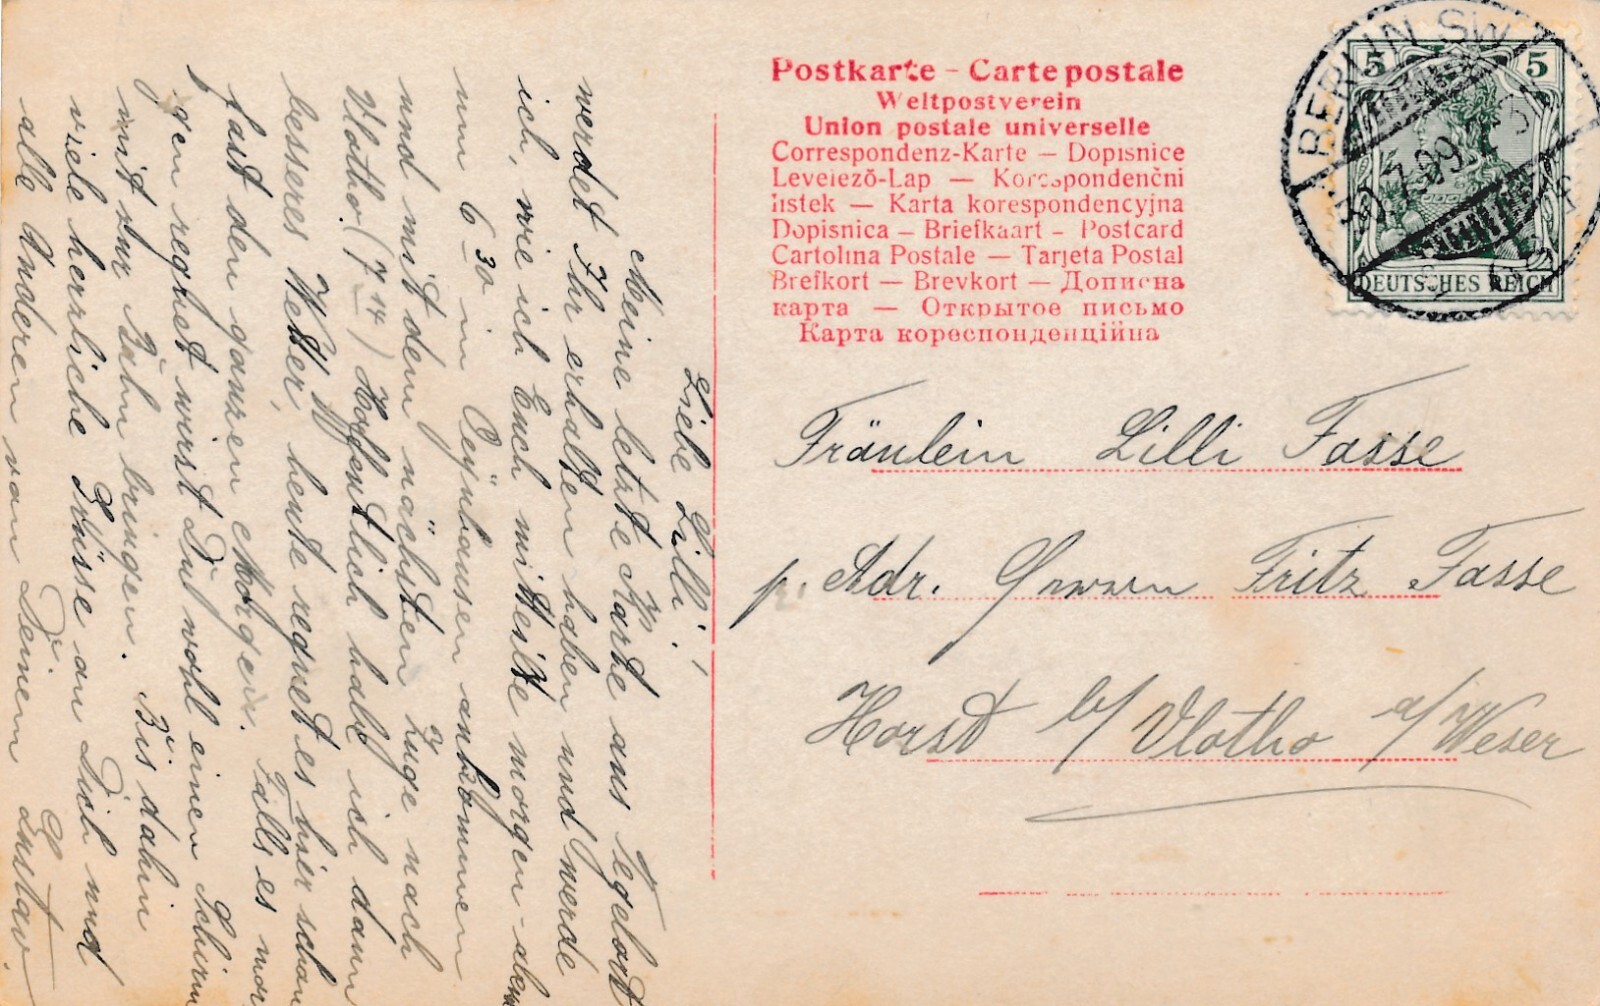 Postkarte – Carte postale
Weltpostverein
Union postale universelle
Correspondenz-Karte — Dopisnice
Levelező-Lap — Korespondenční
listek — Karta korespondencyjna
Dopisnica — Briefkaart — Postcard
Cartolina Postale — Tarjeta Postal
Brefkort — Brevkort — Дописна
карта — Открытое письмо
Карта кореспонденційна
BERLIN SW
30.7.09
5 5
DEUTSCHES REICH
Fräulein Lilli Fasse
p. Adr. Fritz Fasse
Horst b/ Vlotho a/Weser
Liebe Lilli!
Meine letzte Karte aus Tegelort
werdet Ihr erhalten haben und werde
ich, wie ich Euch mitteilte morgen-abend
um 6 30 in Oeynhausen ankommen
und mit dem nächsten Zuge nach
Vlotho. (7 14) Hoffentlich habe ich dann
besseres Wetter, heute regnet es hier schon
fast den ganzen Morgen. Falls es mor
gen regnet wirst Du wohl einen Schirm
mit zur Bahn bringen. Bis dahin
viele herzliche Grüsse an Dich und
alle Anderen von Deinem Gustav.